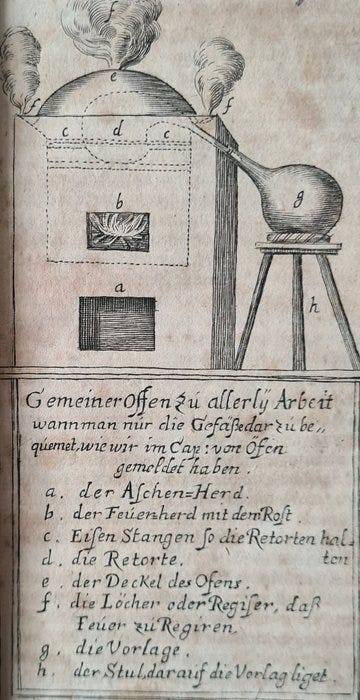 f
e
f
f
c
d
c
b
g
a
h
Gemeiner Offen zu allerlÿ Arbeit
wann man nur die Gefäße dar zu be„
quemet, wie wir im Cap: von Öfen
gemeldet haben.
a. der Aschen=Herd.
b. der Feüenherd mit dem Rost.
c. Eisen Stangen so die Retorten hal=
ten
d. die Retorte.
e. der Deckel des Ofens.
f. die Löcher oder Regiser, daß
Feüer zu Regiren.
g. die Vorlage.
h. der Stul, darauf die Vorlag liget.